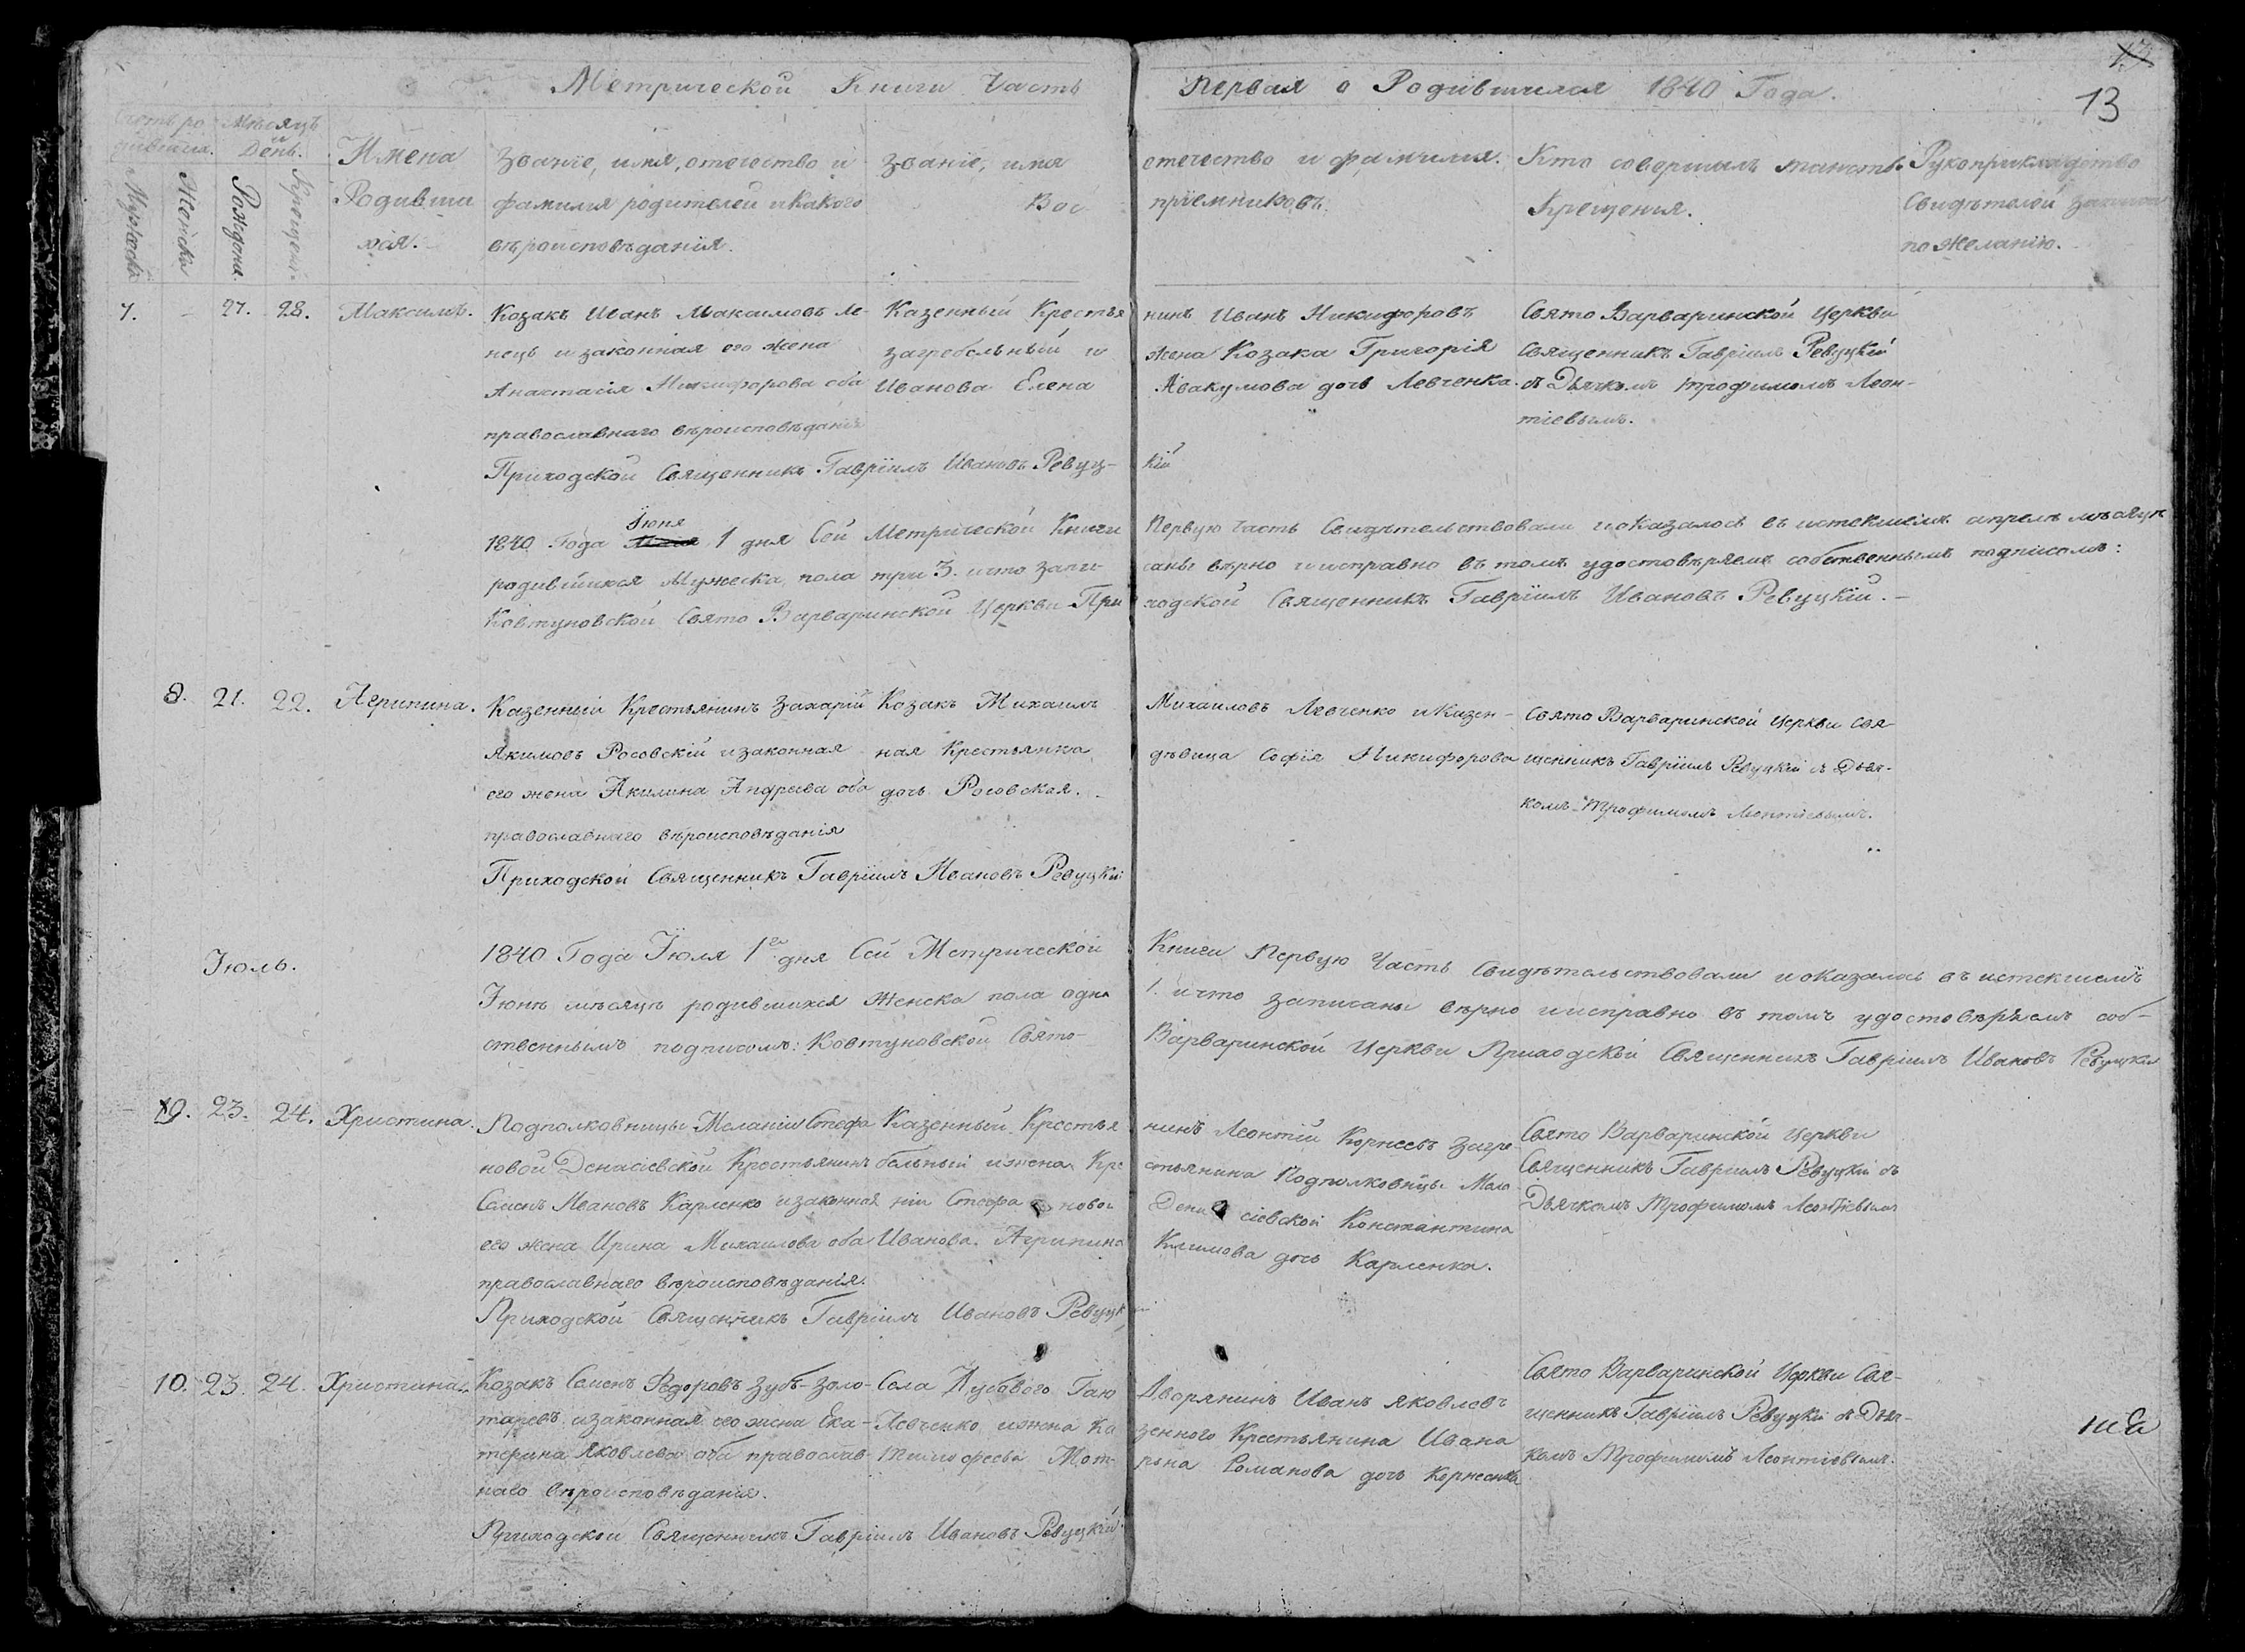 Метрической Книги Часть первая о Родившихся 1840 Года.
13
13
Счетъ ро
дившихся.
Мѣсяцъ
и
День.
Мужеска
Женска
Рожденя.
Крещенія
Имена
Родивши
хся.
Званіе, имя, отечество и
фамилія родителей и какого
вѣроисповѣданія.
Званіе, имя отечество и фамилия.
Вос приемниковъ.
Кто совершалъ таинств.
Крещенія.
Рукоприкладство
Свидѣтелей записи
по желанію.
7. - 27. 28. Максимъ.
Козакъ Иванъ Максимовъ Ле-
нецъ и законная его жена
Анастасія Никифорова оба
православнаго вѣроисповѣданія
Казенный Крестья нинъ Иванъ Никифоровъ
загребельный и жена Козака Григорія
Иванова Елена Авакумова дочь Левченка.
Свято Варваринской Церкви
Священникъ Гавріилъ Ревуцкій
съ Дьячкомъ Трофимомъ Леон-
тіевымъ.
Приходской Священникъ Гавріилъ Ивановъ Ревуц- кій
Іюня
1840 Года Маія 1 дня Сей Метрической Книги Первую Часть Свидѣтельствовали и оказалось въ истекшемъ апрелѣ мѣсяцѣ
родившихся Мужеска пола при 3. и что запи- саны вѣрно и исправно въ томъ удостовѣряемъ собственнымъ подписомъ:
Ковтуновской Свято Варваринской Церкви При ходской Священникъ Гавріилъ Ивановъ Ревуцкій. -
8. 21. 22. Агрипина.
Казенный Крестьянинъ Захарій
Акимовъ Росовскій и законная
его жена Акилина Андреева оба
православнаго вѣроисповѣданія
Козакъ Михаилъ Михаиловъ Левченко и Казен-
ная Крестьянка дѣвица Софія Никифорова
дочь Росовская.
Свято Варваринской Церкви Свя-
щенникъ Гавріилъ Ревуцкій съ Дьяч-
комъ Трофимомъ Леонтіевымъ.
Приходской Священникъ Гавріилъ Ивановъ Ревуцкій
Іюль.
1840 Года Іюля 1го дня Сей Метрической Книги Первую Часть Свидѣтельствовали и оказалось въ истекшемъ
Іюнѣ мѣсяцѣ родившихся Женска пола одна 1. и что записаны вѣрно и исправно въ томъ удостовѣряемъ соб-
ственнымъ подписомъ: Ковтуновской Свято- Варваринской Церкви Приходской Священникъ Гавріилъ Ивановъ Ревуцкій
9. 23. 24. Христина.
Подполковницы Меланіи Стефа
новой Денисіевской Крестьянинъ
Семенъ Ивановъ Карленко и законная
его жена Ирина Михаилова оба
православнаго вѣроисповѣданія.
Казенный Крестья нинъ Леонтій Корнеевъ Загре-
бельный и жена Кре стьянина Подполковницы Мела-
ніи Стефа новой Дени сіевской Константина
Иванова Агрипина Климова дочь Карленка.
Свято Варваринской Церкви
Священникъ Гавріилъ Ревуцкій съ
Дьячкомъ Трофимомъ Леонтіевымъ
Приходской Священникъ Гавріилъ Ивановъ Ревуцкій
10. 23. 24. Христина.
Козакъ Семенъ Федоровъ Зубъ-Золо-
таревъ и законная его жена Ека-
терина Яковлева оба православ-
наго вѣроисповѣданія.
Села Дубового Гаю Дворянинъ Иванъ Яковлевъ
Левченко и жена Ка зенного Крестьянина Ивана
Тимофеева Мот- рона Романова дочь Корнеенка
Свято Варваринской Церкви Свя-
щенникъ Гавріилъ Ревуцкій съ Дьяч-
комъ Трофимомъ Леонтіевымъ.
Приходской Священникъ Гавріилъ Ивановъ Ревуцкій.